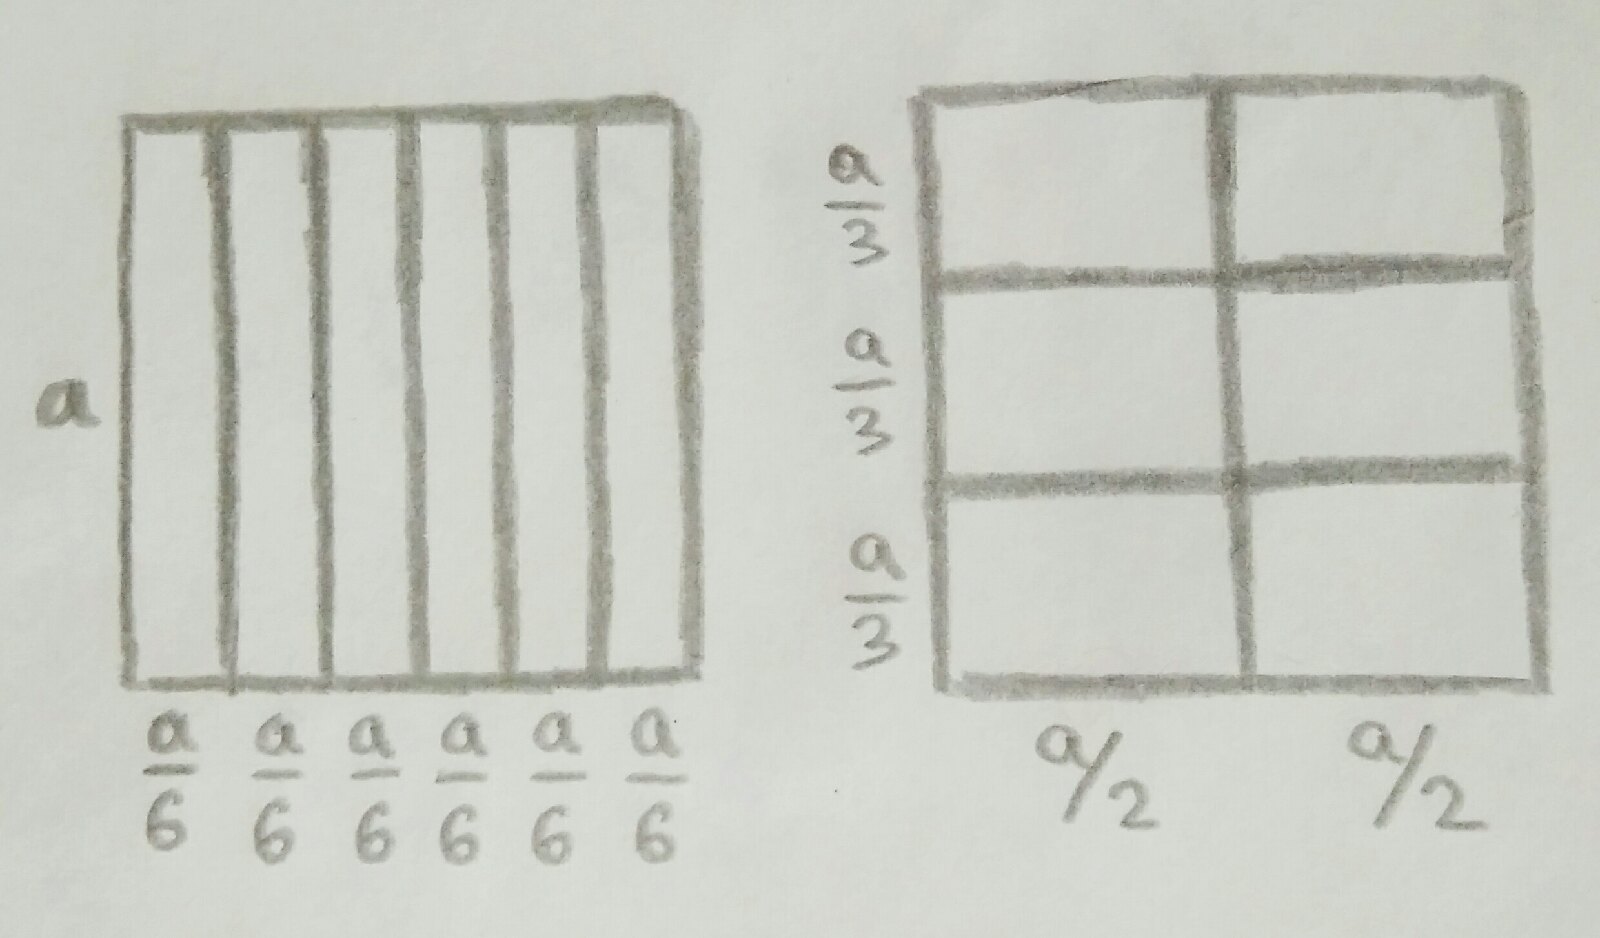 a
a/6 a/6 a/6 a/6 a/6 a/6
a/3
a/3
a/3
a/2 a/2